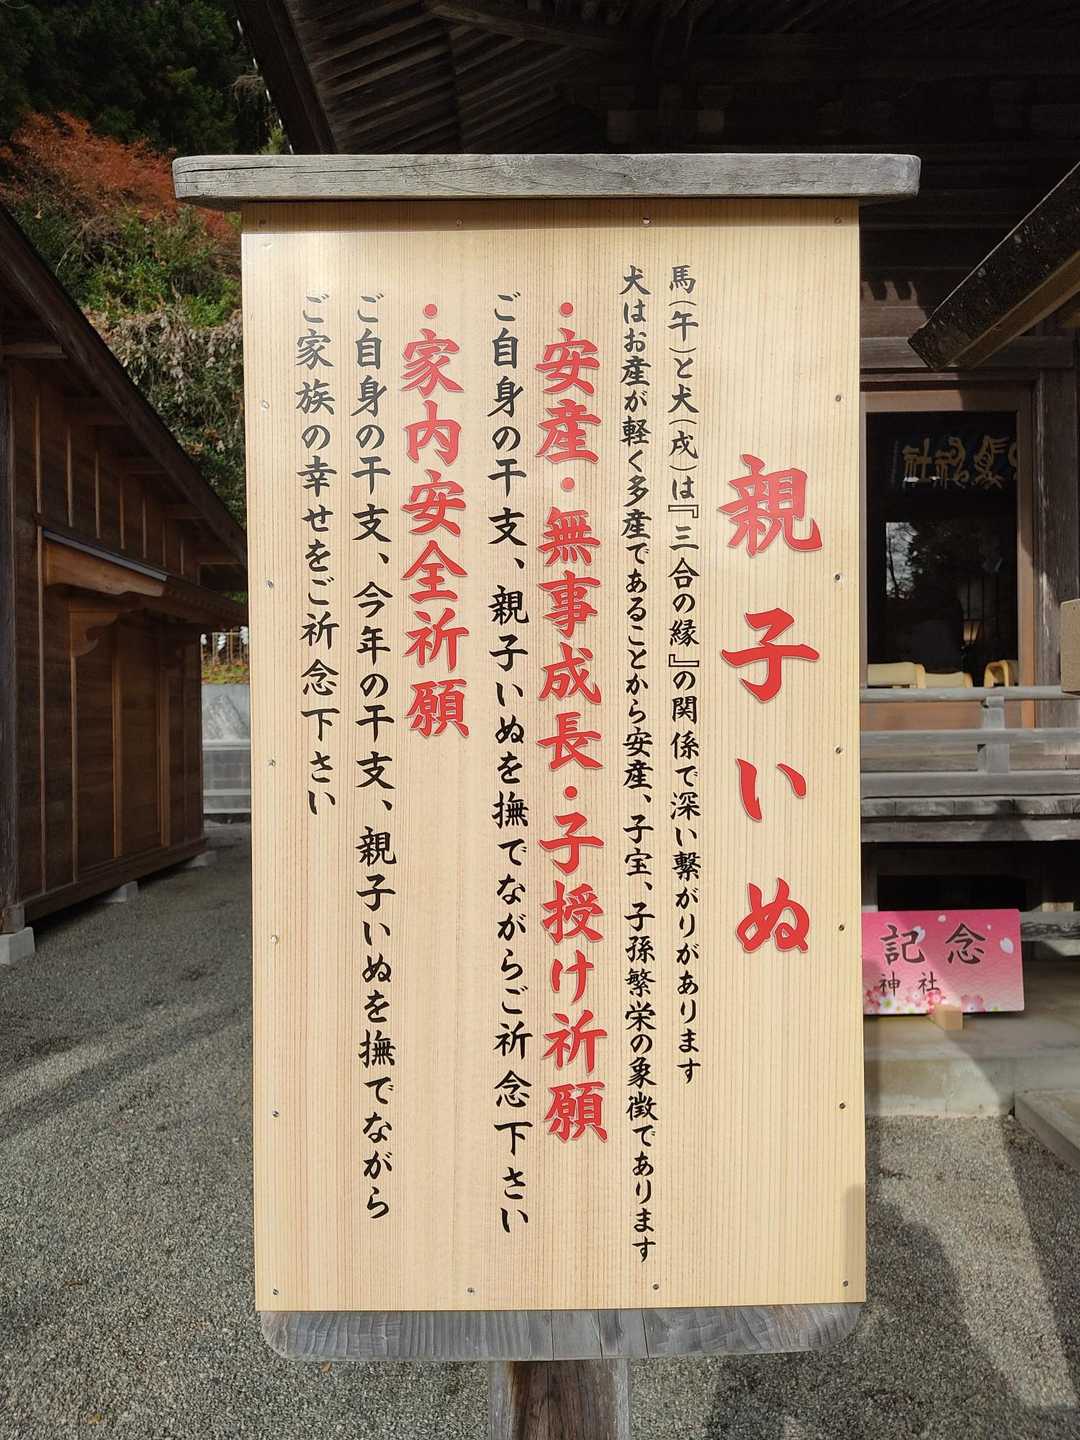 親子いぬ
馬(午)と犬(戌)は『三合の縁』の関係で深い繋がりがあります
犬はお産が軽く多産であることから安産、子宝、子孫繁栄の象徴であります
・安産・無事成長・子授け祈願
ご自身の干支、親子いぬを撫でながらご祈念下さい
・家内安全祈願
ご自身の干支、今年の干支、親子いぬを撫でながら
ご家族の幸せをご祈念下さい
記念
神社